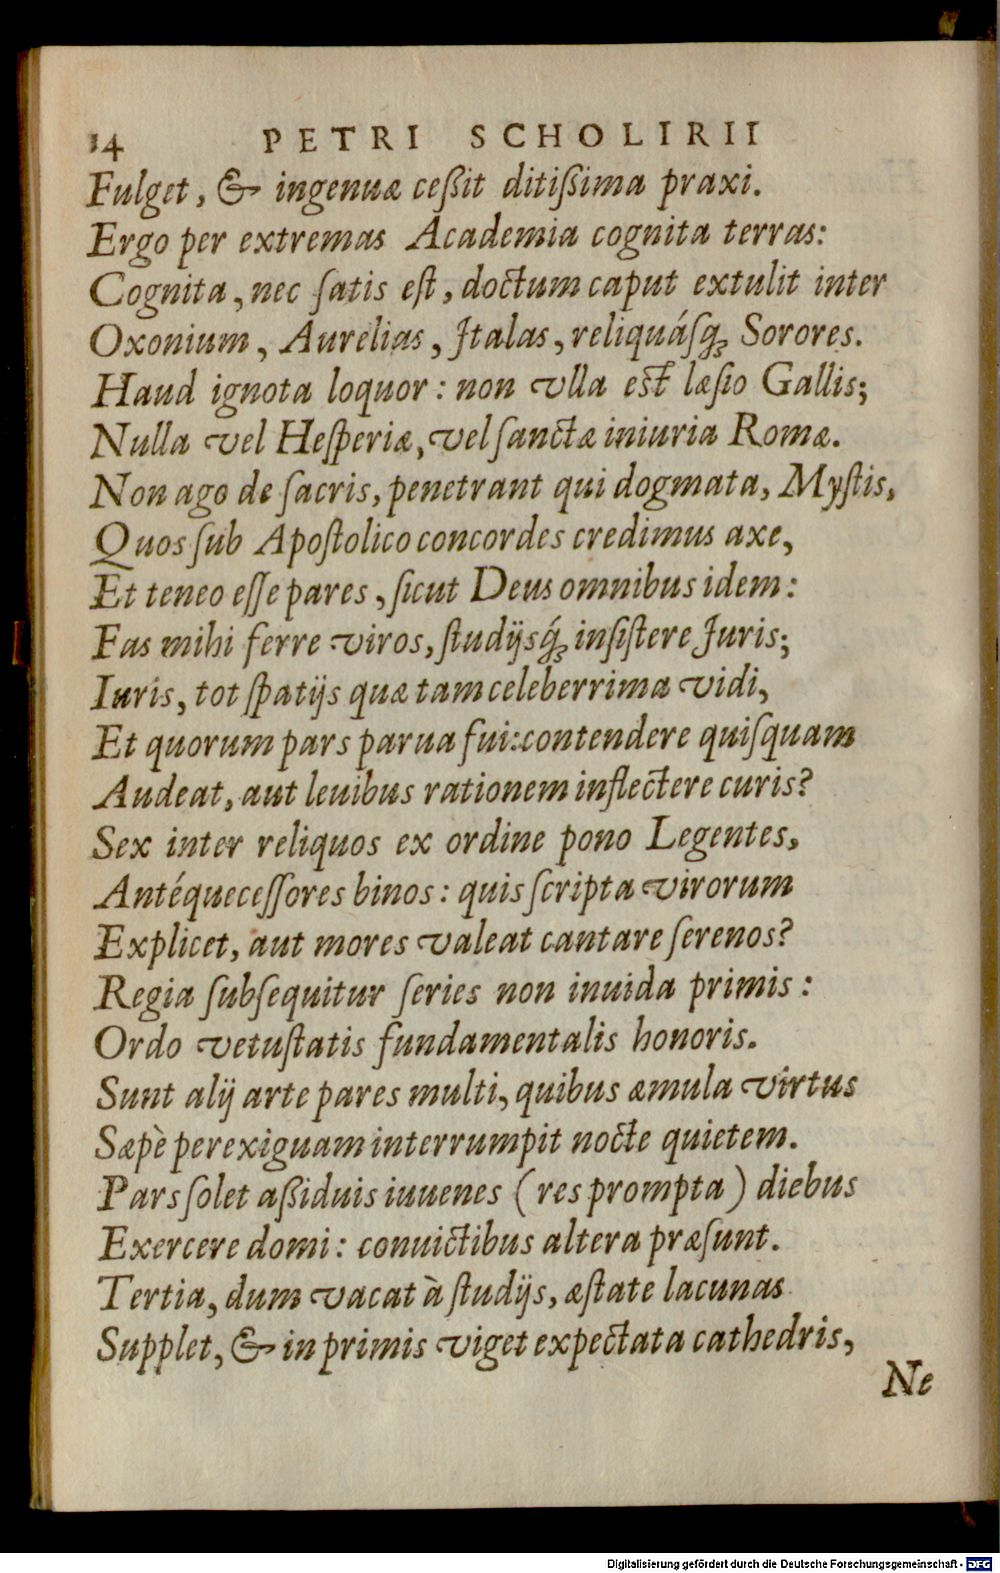 14 PETRI SCHOLIRII
Fulget, & ingenuæ ceßit ditißima praxi.
Ergo per extremas Academia cognita terras:
Cognita, nec ſatis eſt, doctum caput extulit inter
Oxonium, Aurelias, Italas, reliquáſq; Sorores.
Haud ignota loquor: non vlla est læſio Gallis;
Nulla vel Heſperiæ, vel ſanctæ iniuria Romæ.
Non ago de ſacris, penetrant qui dogmata, Myſtis,
Quos ſub Apoſtolico concordes credimus axe,
Et teneo eſſe pares, ſicut Deus omnibus idem:
Fas mihi ferre viros, ſtudijsq́; inſiſtere Juris;
Iuris, tot ſpatijs quæ tam celeberrima vidi,
Et quorum pars parua fui: contendere quiſquam
Audeat, aut leuibus rationem inflectere curis?
Sex inter reliquos ex ordine pono Legentes,
Antéqueceſſores binos: quis ſcripta virorum
Explicet, aut mores valeat cantare ſerenos?
Regia ſubſequitur ſeries non inuida primis:
Ordo vetuſtatis fundamentalis honoris.
Sunt alij arte pares multi, quibus æmula virtus
Sæpè perexiguam interrumpit nocte quietem.
Pars ſolet aßiduis iuuenes (res prompta) diebus
Exercere domi: conuictibus altera præſunt.
Tertia, dum vacat à ſtudijs, æſtate lacunas
Supplet, & in primis viget expectata cathedris,
Ne
Digitalisierung gefördert durch die Deutsche Forschungsgemeinschaft - DFG